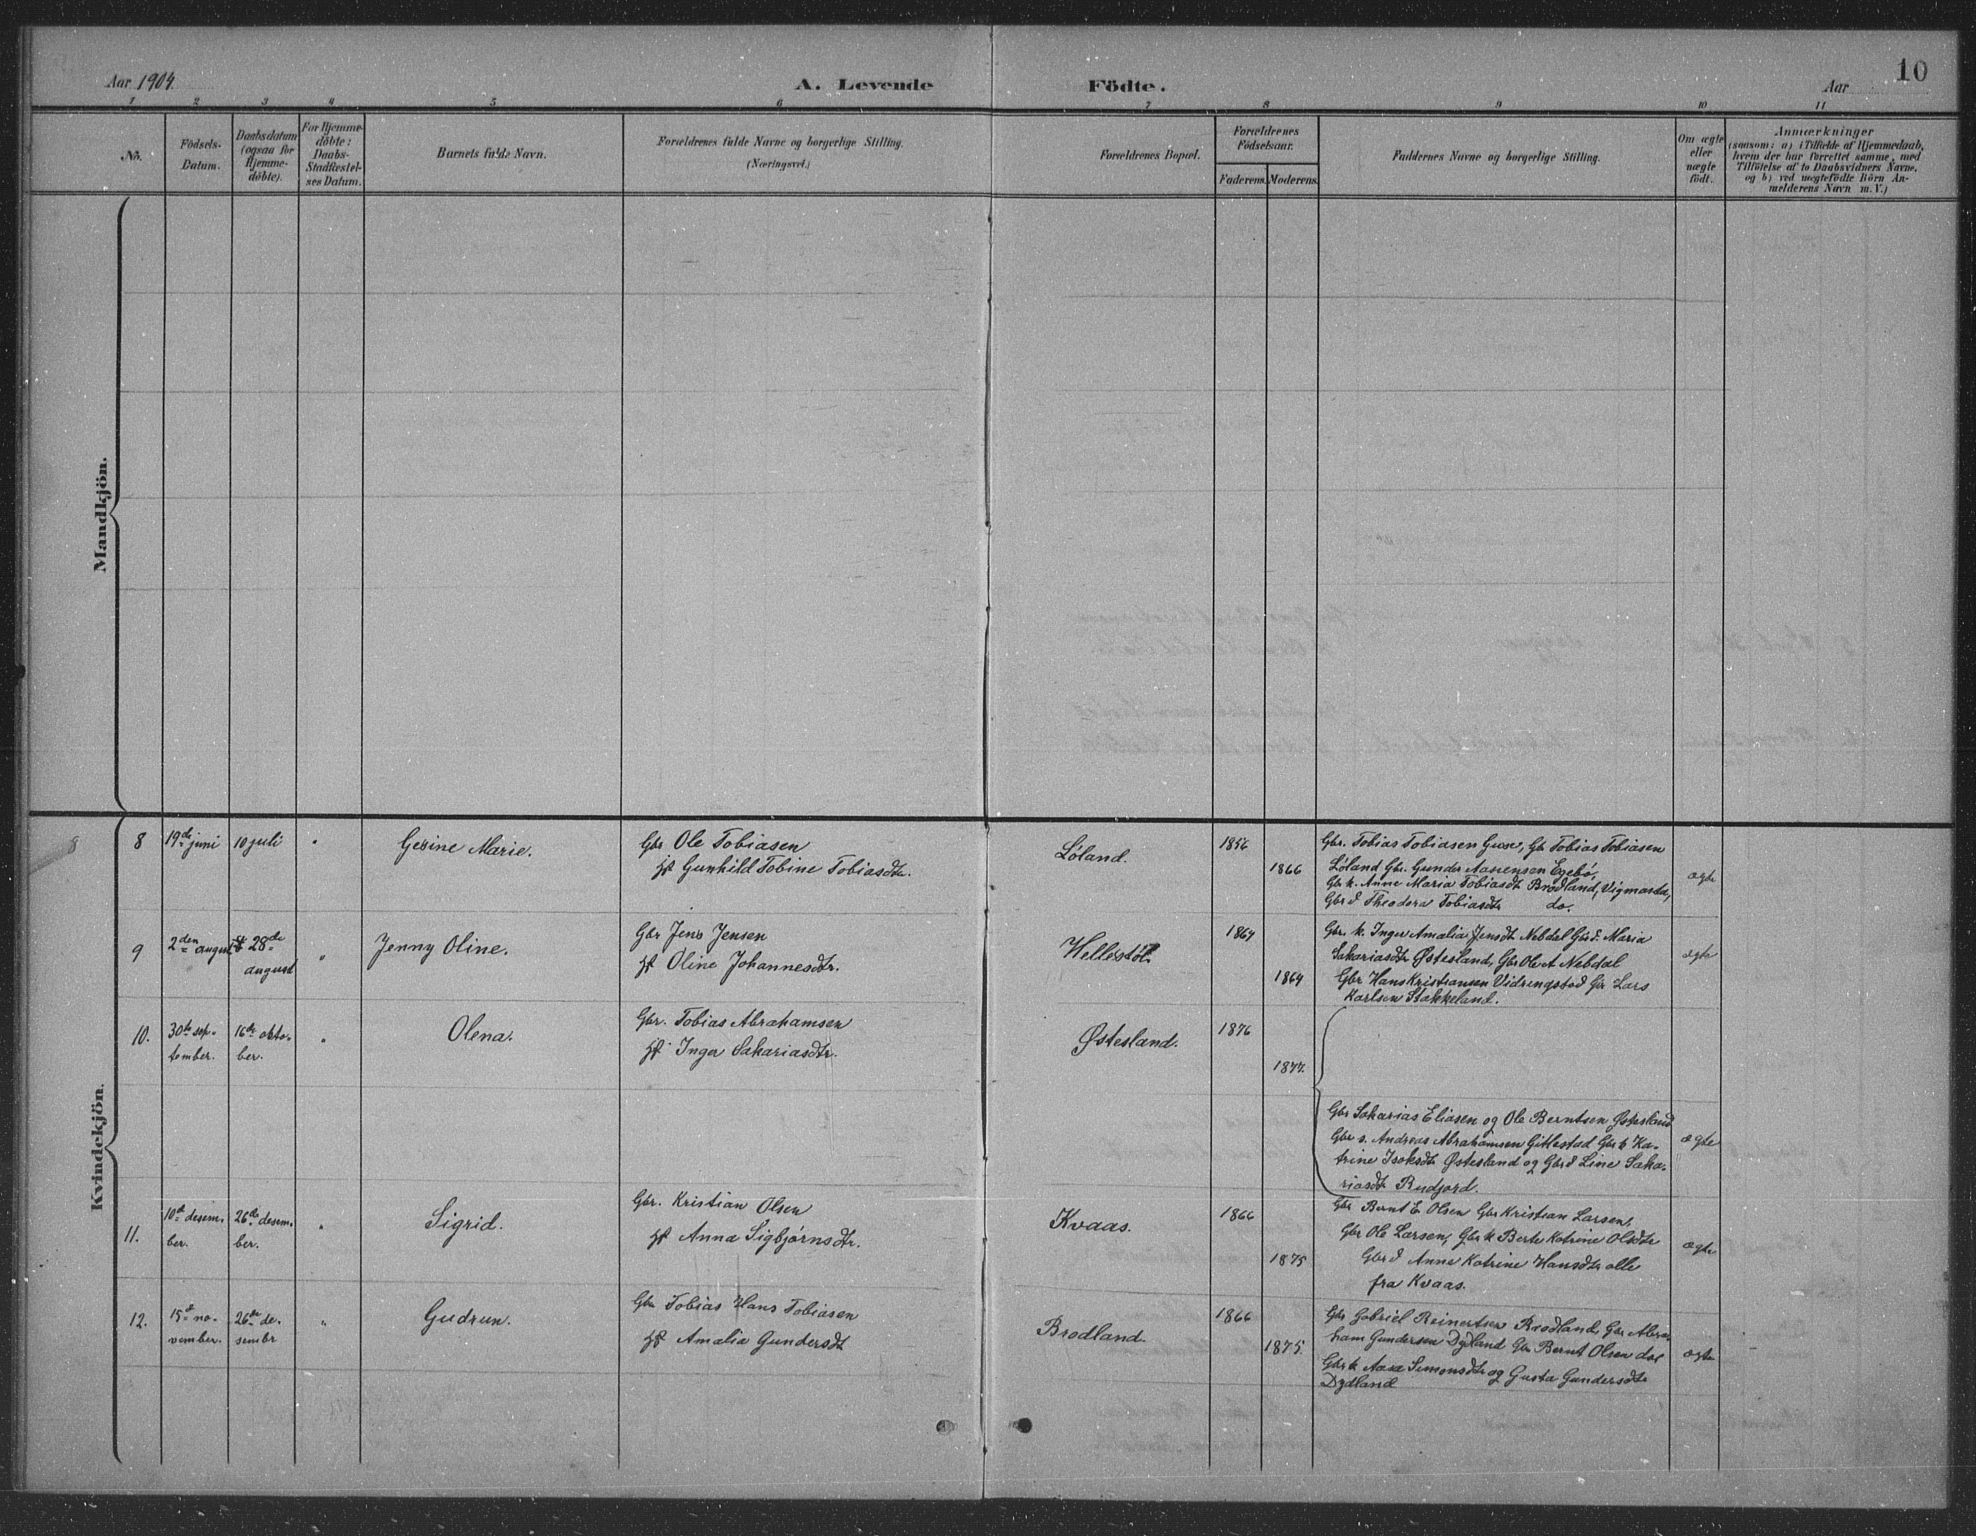 Aar 1904.
A. Levende
Födte.
Aar
10
1 2 3 4 5 6 7 8 9 10 11
No.
Födsels-
Datum.
Daabsdatum
(ogsaa for
Hjemme-
döbte).
For Hjemme-
döbte:
Daabs-
Stadfæstel-
ses Datum.
Barnets fulde Navn.
Forældrenes fulde Navne og borgerlige Stilling.
(Næringsvei.)
Forældrenes Bopæl.
Forældrenes
Födselsaar.
Faderens. Moderens.
Faddernes Navne og borgerlige Stilling.
Om ægte
eller
uægte
født.
Anmærkninger
(saasom: a) i Tilfælde af Hjemmedaab,
hvem der har forrettet samme, med
Tilføielse af to Daabsvidners Navne,
og b) ved uægtefödte Börn An-
melderens Navn m. V.)
Mandkjön.
Kvindekjön.
8 19de juni 10 juli " Gesine Marie.
Gbr Ole Tobiasen
Hst Gunhild Tobine Tobiasdtr.
Løland.
1856
1866
Gbr. Tobias Tobiasen Gb Tobias Tobiasen
Løland Gbr. Gunder Aanensen Egebø,
Gbr k. Anne Maria Tobiasdt Brødland, Vigmostad,
Gbr d Theodora Tobiasdtr do.
ægte
9 2den august 28de
august " Jenny Oline.
Gbr Jens Jensen
Hst Oline Johannesdtr.
Hellestøl
1864
1864
Gbr. k. Inger Amalia Jensdt Nebdal Gbrd. Maria
Sakariasdtr Østesland, Gbr Ole A Nebdal
Gbr Hans Kristiansen Vidringstad Gbr Lars
Karlsen Stakkeland.
ægte
10. 30te sep-
tember. 16de okto-
ber. " Olena.
Gbr. Tobias Abrahamsen
Hst Inger Sakariasdtr.
Østesland.
1876
1877.
Gbr Sakarias Eliasen og Ole Berntsen Østesland
Gbr s. Andreas Abrahamsen Gitlestad Gbr k Ka-
trine Isaksdtr Østesland og Gbrd Line Saka-
riasdt Rudjord.
ægte
11. 10de desem-
ber. 26de desem-
ber. " Sigrid.
Gbr. Kristian Olsen
Hst Anna Sigbjørnsdtr.
Kvaas.
1866
1875
Gbr Bernt E Olsen Gbr Kristian Larsen,
Gbr Ole Larsen, Gbr k Berte Katrine Olsdtr
Gbr d Anne Katrine Hansdtr alle
fra Kvaas.
ægte
12. 15de no-
vember. 26de de-
sembr " Gudrun.
Gbr Tobias Hans Tobiasen
Hst Amalia Gundersdt
Brodland.
1866
1875.
Gbr Gabriel Reinertsen Brodland, Gbr Abra-
ham Gundersen Dydland Gbr Bernt Olsen
Gbr k Aasa Simonsdtr og Gusta Gundersdtr
Dydland
ægte